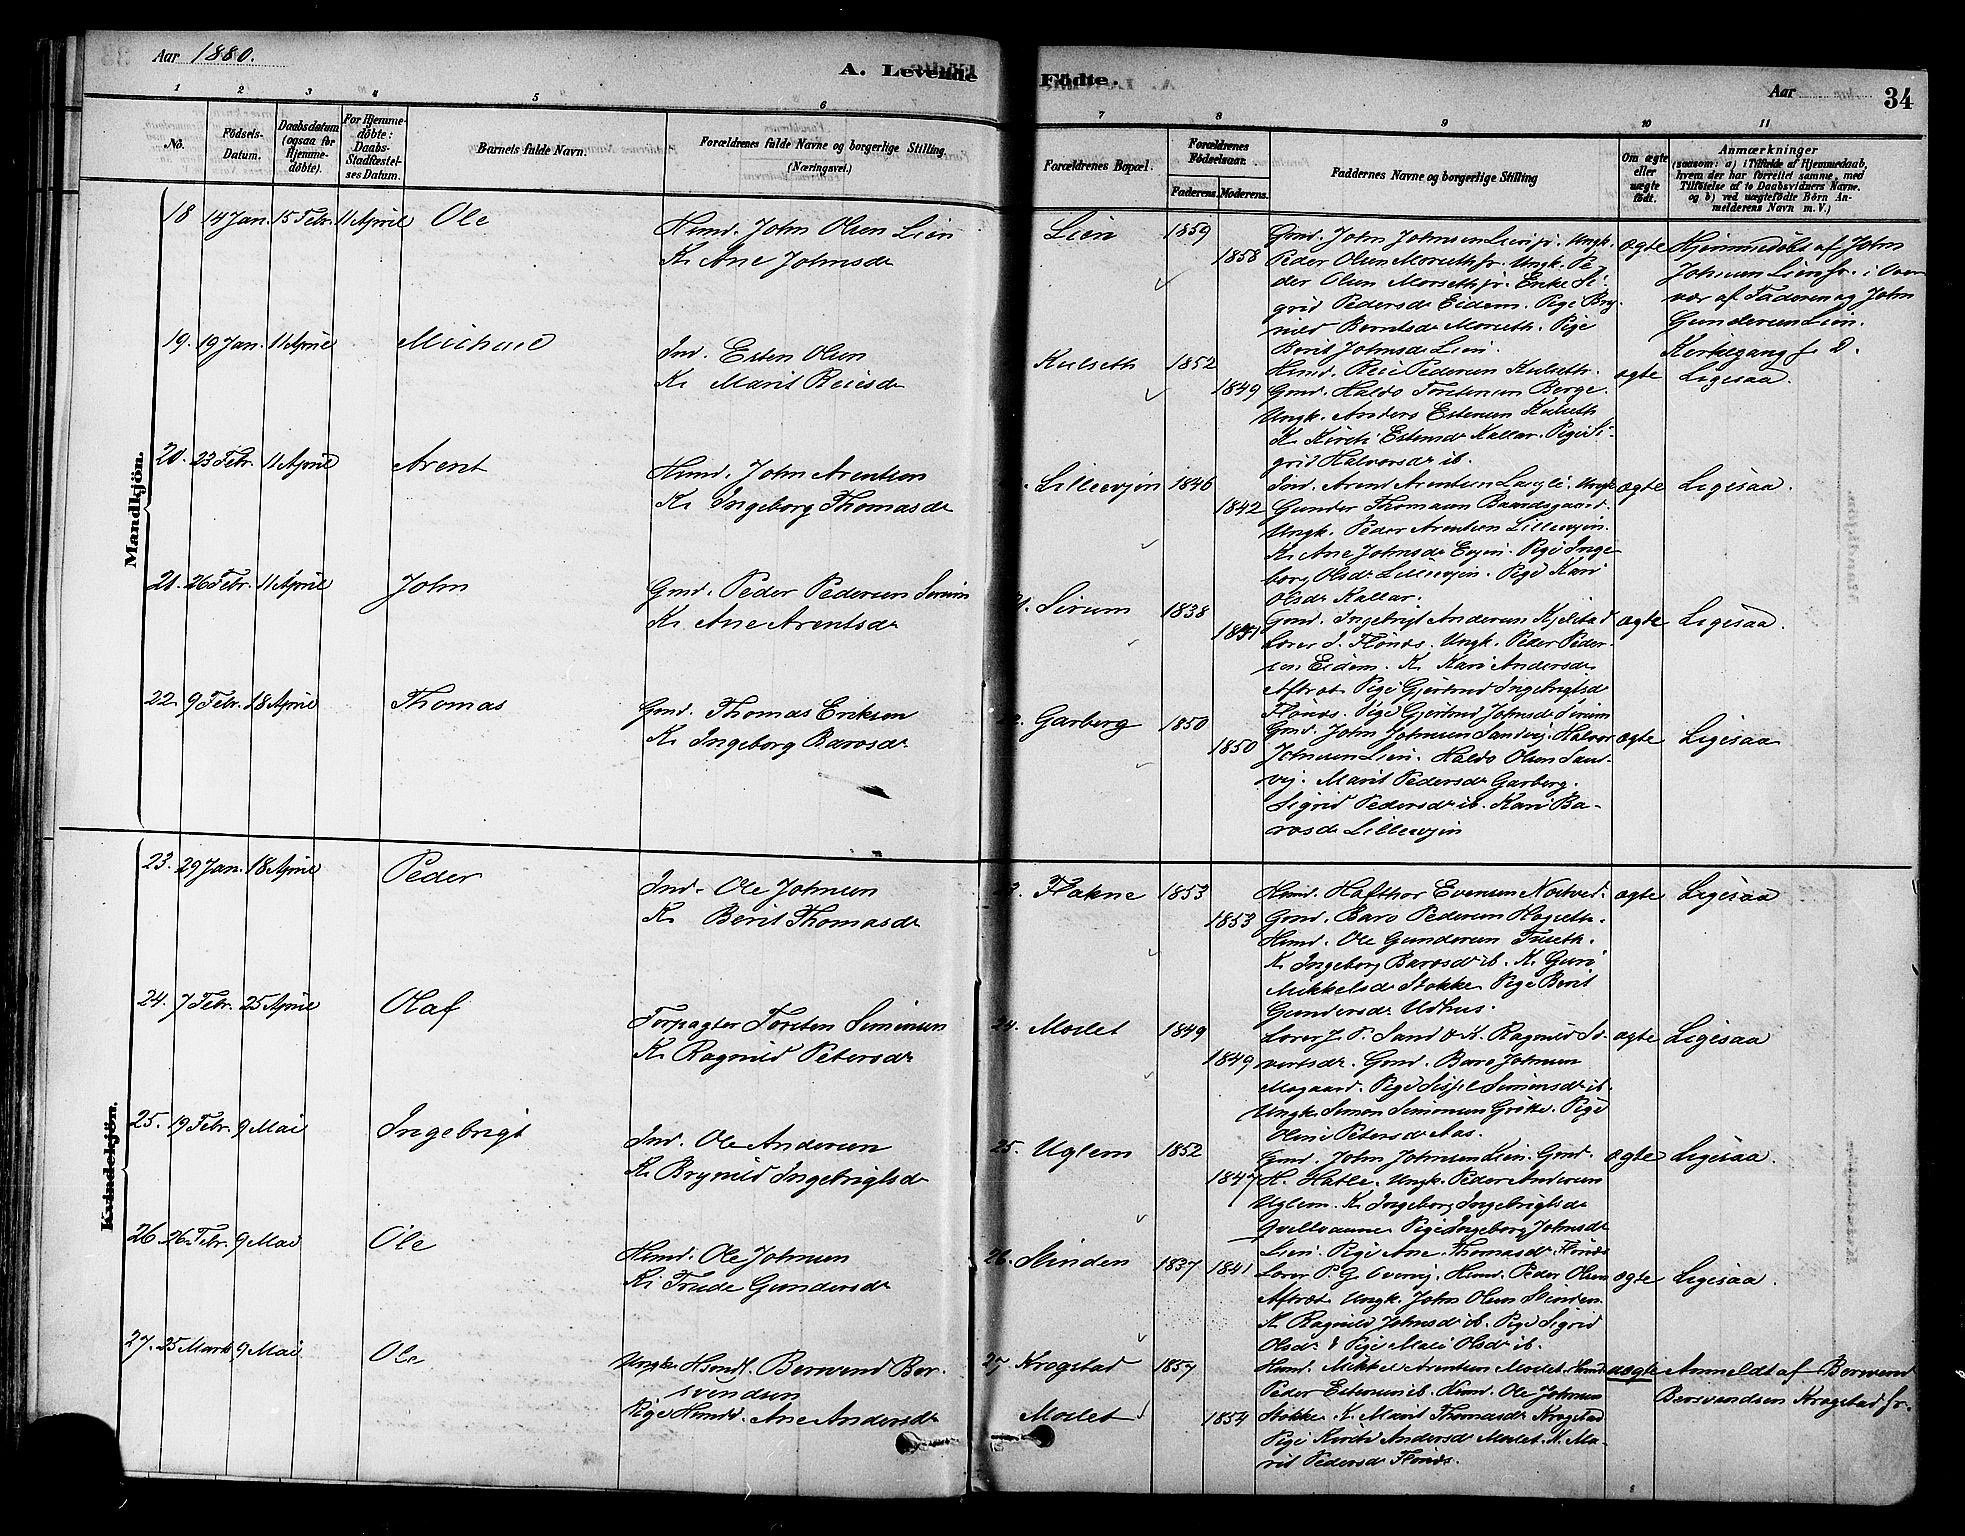 Aar 1880.
A. Levende
Födte.
Aar
34
1 2 3 4 5 6
7 8 9 10 11
No.
Födsels-
Datum.
Daabsdatum
(ogsaa for
Hjemme-
döbte).
For Hjemme-
döbte:
Daabs-
Stadfæstel-
ses Datum.
Barnets fulde Navn.
Forældrenes fulde Navne og borgerlige Stilling
(Næringsvei.)
Forældrenes Bopæl.
Forældrenes
Födselsaar.
Faderens. Moderens.
Faddernes Navne og borgerlige Stilling
Om ægte
eller
uægte
födt.
Anmærkninger
(saasom: a) i Tilfælde af Hjemmedaab,
hvem der har forrettet samme, med
Tilföielse af to Daabsvidners Navne.
og b) ved uægtefödte Börn An-
melderens Navn m. V.)
Mandkjön.
18 14 Jan. 15 Febr. 11 April Ole
Hmd. John Olsen Lien
K. Ane Johnsdr
Lien 1859
1858
Gmd. John Johnsen Lien jr. Ungk.
Peder Olsen Morseth sr. Ungk. Pe-
der Olsen Morseth jr. Enke Si-
grid Pedersdr Eidem. Pige Bry-
nild Berntsdr Morseth. Pige
Berit Johnsdr Lien.
ægte
Hjemmedöbt af John
Johnsen Lien sr. i Over
vær af Faderen og John
Gundersen Lien.
Kirkegang s. D.
19. 19 Jan. 11 April Michael
Ind. Esten Olsen
K. Marit Reiesdr
Kulseth 1852
1849
Hmd. Reie Pedersen Kulseth.
Gmd. Haldo Torstensen Berge.
Ungk. Anders Estensen Kulseth
K. Kirsti Estensdr Kallar. Pige Si-
grid Halvorsdr ib.
ægte Ligesaa.
20. 23 Febr. 11 April Arent
Hmd. John Arentsen
K. Ingeborg Thomasdr
Lillevjen 1846
1842
Ind. Arent Arentsen Lavli. Ungk
Gunder Thomasen Baardsgaard.
Ungk. Peder Arentsen Lillevjen.
K. Ane Johnsdr Evjen. Pige Inge
borg Olsdr Lillevjen. Pige Kari
Olsdr Kallar.
ægte Ligesaa.
21. 26 Febr. 11 April John
Gmd. Peder Pedersen Sirum
K. Ane Arentsdr
21. Sirum 1838
1841
Gmd. Ingebrigt Andersen Kjelstad
Lærer J. Flönes. Ungk. Peder Peder-
sen Eidem. K. Kari Andersdr
Aftræt. Pige Gjertrud Ingebrigtsdr
Flönes. Pige Gjertrud Johnsdr Sirum
ægte Ligesaa.
22. 9 Febr. 18 April Thomas
Gmd. Thomas Eriksen
K. Ingeborg Barosdr
22. Garberg 1850
1850
Gmd. John Johnsen Sandvej. Halvor
Johnsen Lien. Haldo Olsen Sand-
vej. Marit Pedersdr Garberg.
Sigrid Pedersdr ib. Kari Ba-
rosdr Lillevjen
ægte Ligesaa
Kvindekjön.
23. 29 Jan. 18 April Peder
Ind. Ole Johnsen
K. Berit Thomasdr
23. Flakne 1853
1853
Hmd. Hafthor Evensen Nordved.
Gmd. Baro Pedersen Hogseth.
Hmd. Ole Gundersen Fuseth.
K. Ingeborg Barosdr ib. K. Guri
Mikkelsdr Stokke. Pige Berit
Gundersdr Udhus.
ægte Ligesaa
24. 7 Febr. 25 April Olaf
Forpagter Torsten Simonsen
K. Ragnild Petersdr
24. Moslet 1849
1849
Lærer J. P. Sand & K. Ragnild Si-
vertsdr. Gmd. Baro Johnsen
Mogaard. Pige Sissel Simonsdr ib.
Ungk. Simon Simonsen Grötte. Pige
Oline Petersdr Aas.
ægte Ligesaa
25. 19 Febr. 9 Mai Ingebrigt
Ind. Ole Andersen
K. Brynild Ingebrigtsdr
25. Uglem 1852
1847
Gmd. John Johnsen Lien. Gmd.
H. Hatle. Ungk. Peder Andersen
Uglem. K. Ingeborg Ingebrigtsdr
Qvellovanne. Pige Ingeborg Johnsdr
Lien. Pige Ane Thomasdr Flönes
ægte Ligesaa.
26. 26 Febr. 9 Mai Ole
Hmd. Ole Johnsen
K. Frude Gundersdr
26. Slinden 1837 1841
Lærer P. G. Overvig. Hmd. Peder Olsen
Aftræt. Ungk. John Olsen Slinden.
K. Ragnild Johnsdr ib. Pige Sigrid
Olsdr & Pige Mali Olsdr ib.
ægte Ligesaa.
27. 25 Marts 9 Mai Ole
Ungk. Hsmdf. Bersvend Ber-
svendsen
Pige Hsmdd. Ane Andersdr
27 Krogstad 1857
Moslet 1854
Hmd. Mikkel Arentsen Moslet. Hmd
Peder Estensen ib. Hmd. Ole Johnsen
Stokke. K. Marit Thomasdr Krogstad
Pige Kirsti Andersdr Moslet. K. Ma-
rit Pedersdr Flönes.
uægte Anmeldt af Bersvend
Bersvendsen Krogstad sr.